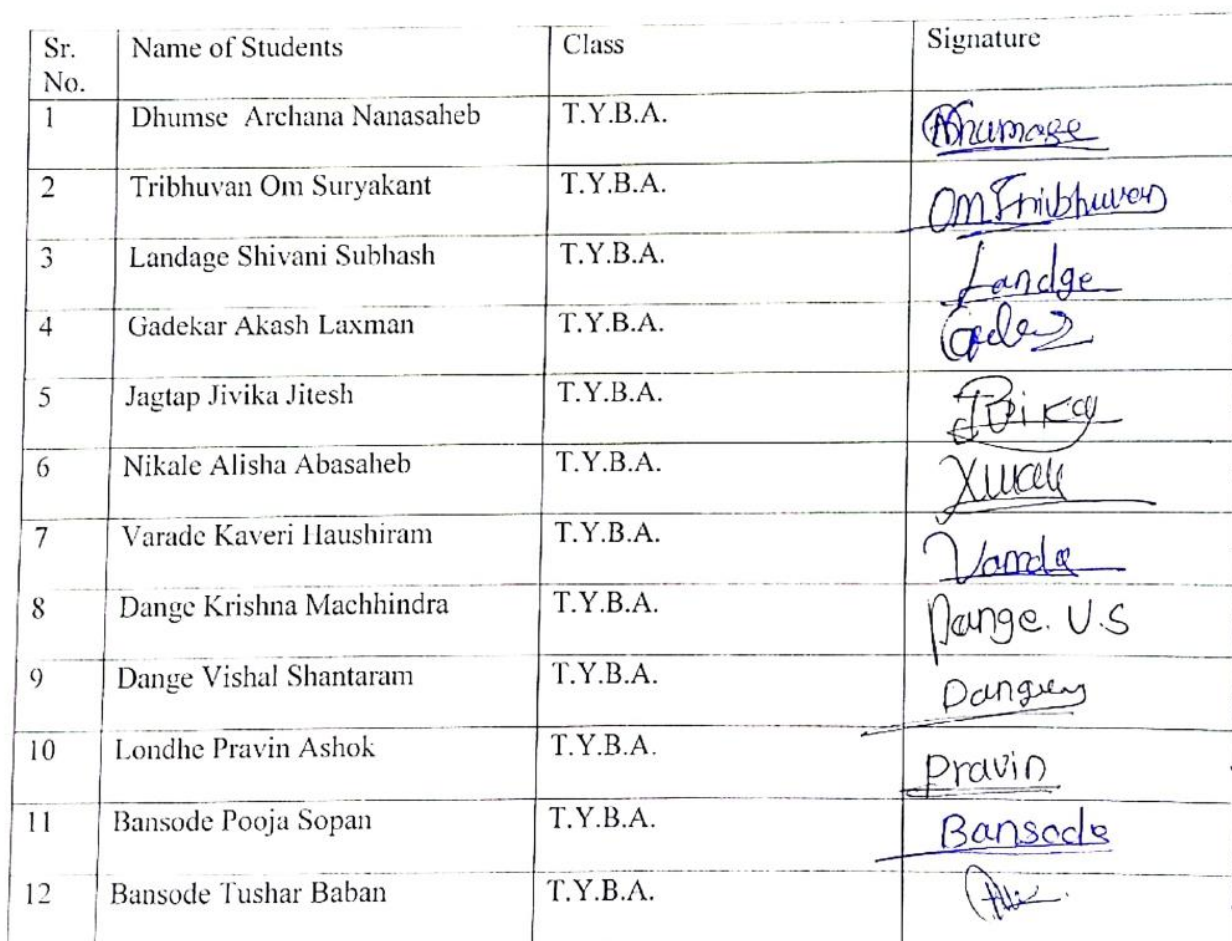 Sr. No. Name of Students Class Signature
1 Dhumse Archana Nanasaheb T.Y.B.A. Dhumase
2 Tribhuvan Om Suryakant T.Y.B.A. Om Tribhuvan
3 Landage Shivani Subhash T.Y.B.A. Landge
4 Gadekar Akash Laxman T.Y.B.A.
5 Jagtap Jivika Jitesh T.Y.B.A.
6 Nikale Alisha Abasaheb T.Y.B.A.
7 Varade Kaveri Haushiram T.Y.B.A. Varade
8 Dange Krishna Machhindra T.Y.B.A. Dange. V.S
9 Dange Vishal Shantaram T.Y.B.A.
10 Londhe Pravin Ashok T.Y.B.A. Pravin
11 Bansode Pooja Sopan T.Y.B.A. Bansode
12 Bansode Tushar Baban T.Y.B.A.